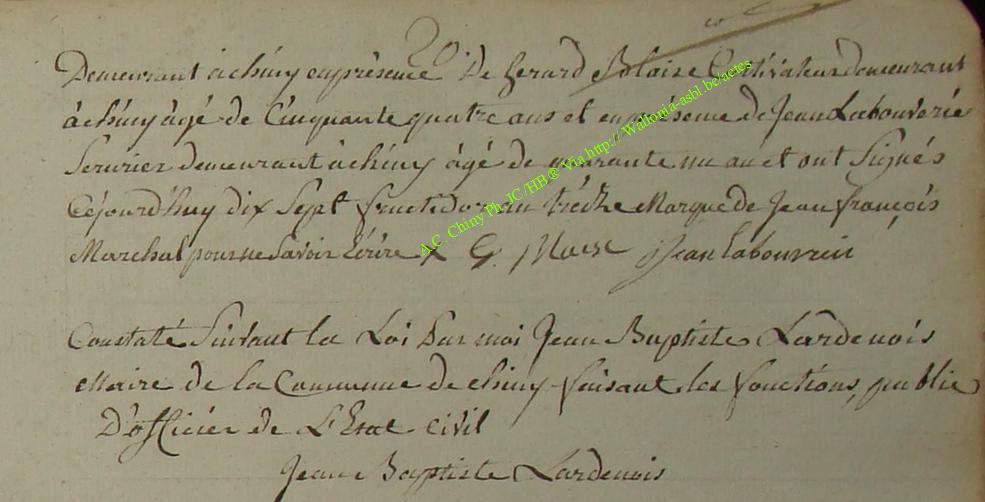 20
Demeurant à chiny en présence De Gerard Blaise Cultivateur demeurant
à chiny âgé de Cinquante quatre ans et en présence de Jean Labouverie
Serurier demeurant à chiny âgé de quarante un an et ont Signés
Céjourd'huy dix Sept fructidor an treize Marque de Jean françois
Marchal pour ne Savoir Ecrire x G. Blaise Jean labouverie
Constaté Suivant la Loi Par moi Jean Baptiste Lardenois
Maire de la Commune de chiny faisant les fonctions, public
D'officier de L'Etat civil
Jean Baptiste Lardenois
A.C. Chiny Ph. JC/HB® Via http://Wallonia-asbl.be/actes